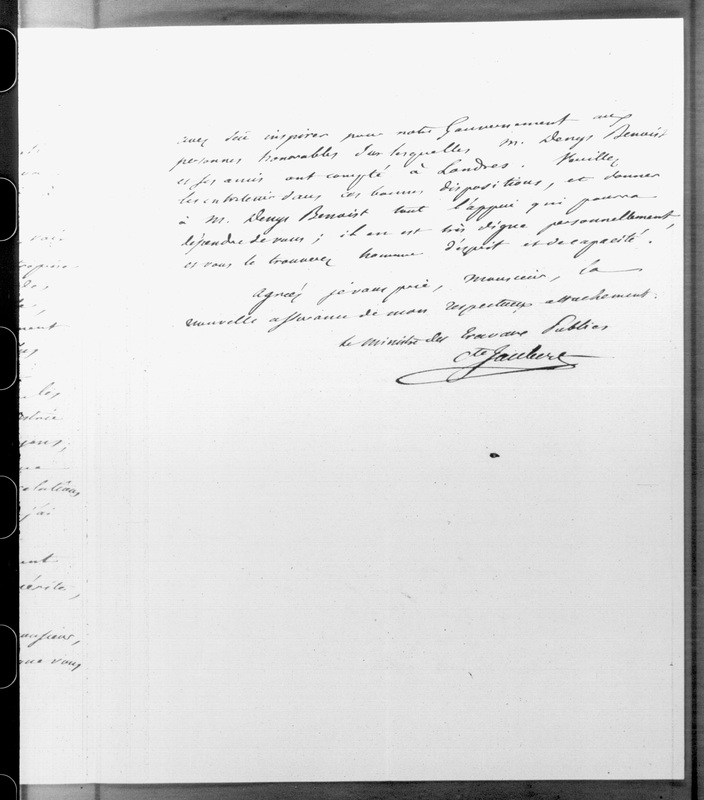 avez dû inspirer pour notre Gouvernement aux
personnes honorables sur lesquelles M. Denys Benoist
et ses amis ont compté à Londres. Veuillez
les entretenir dans ces bonnes dispositions, et donner
à M. Denys Benoist tout l'appui qui pourra
dépendre de vous; il en est très digne personnellement,
et vous le trouverez homme d'esprit et de capacité.
Agréez je vous prie, Monsieur, la
nouvelle assurance de mon respectueux attachement.
Le Ministre des Travaux Publics
Cte Jaubert
les
yens;
j'ai
érite,
que vous